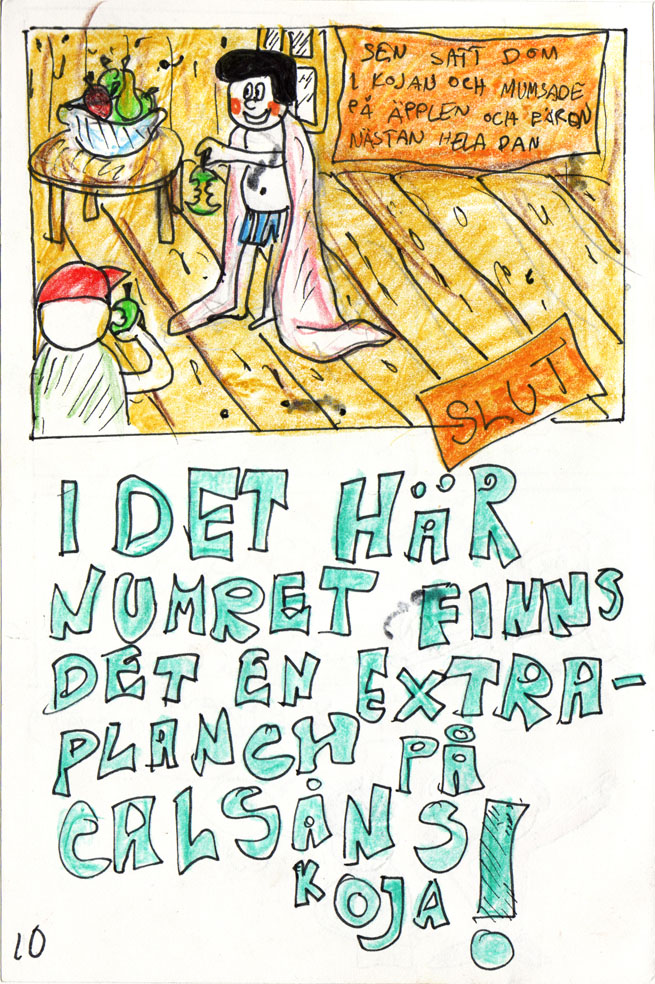 SEN SATT DOM
I KOJAN OCH MUMSADE
PÅ ÄPPLEN OCH PÄRON
NÄSTAN HELA DAN
SLUT
I DET HÄR
NUMRET FINNS
DET EN EXTRA-
PLANCH PÅ
CALSÅNS
KOJA!
10